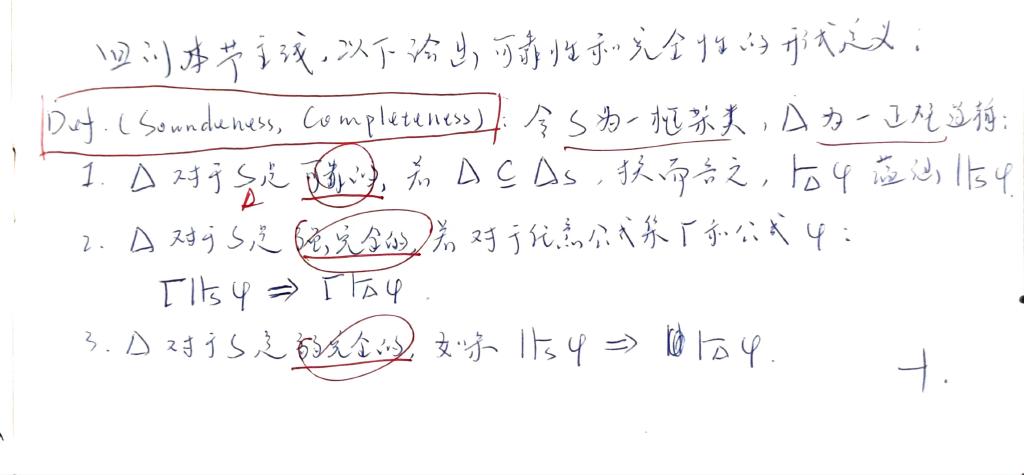 回到本节主线,以下给出可靠性和完全性的形式定义:
Def. (Soundness, Completeness): 令 S 为一框架类, Δ 为一正规逻辑:
1. Δ 对于 S 是可靠的, 若 Δ ⊆ Δs, 换而言之, ⊢Δ φ 蕴涵 ⊩s φ.
Δ
2. Δ 对于 S 是强完全的, 若对于任意公式集 Γ 和公式 φ:
Γ ⊩s φ ⇒ Γ ⊢Δ φ.
3. Δ 对于 S 是弱完全的, 如果 ⊩s φ ⇒ ⊢Δ φ.
⊣.